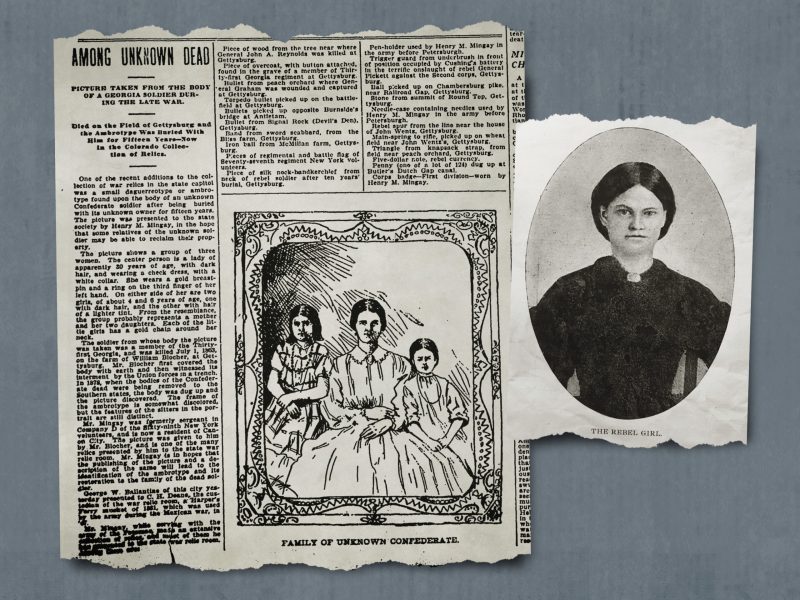 AMONG UNKNOWN DEAD
PICTURE TAKEN FROM THE BODY
OF A GEORGIA SOLDIER DUR-
ING THE LATE WAR.
Died on the Field of Gettysburg and
the Ambrotype Was Buried With
Him for Fifteen Years—Now
in the Colorado Collec-
tion of Relics.
One of the recent additions to the col-
lection of war relics in the state capitol
was a small daguerreotype or ambro-
type found upon the body of an unknown
Confederate soldier after being buried
with its unknown owner for fifteen years.
The picture was presented to the state
society by Henry M. Mingay, in the hope
that some relatives of the unknown sol-
dier may be able to reclaim their prop-
erty.
The picture shows a group of three
women. The center person is a lady of
apparently 30 years of age, with dark
hair, and wearing a check dress, with a
white collar. She wears a gold breast-
pin and a ring on the third finger of her
left hand. On either side of her are two
girls, of about 4 and 6 years of age, one
with dark hair, and the other with hair
of a lighter tint. From the resemblance,
the group probably represents a mother
and her two daughters. Each of the lit-
tle girls has a gold chain around her
neck.
The soldier from whose body the picture
was taken was a member of the Thirty-
first, Georgia, and was killed July 1, 1863,
on the farm of William Blocher, at Get-
tysburg. Mr. Blocher first covered the
body with earth and then witnessed its
interment by the Union forces in a trench.
In 1878, when the bodies of the Confeder-
ate dead were being removed to the
Southern states, the body was dug up and
the picture discovered. The frame of
the ambrotype is somewhat discolored,
but the features of the sitters in the por-
trait are still distinct.
Mr. Mingay was formerly sergeant in
Company D of the Sixty-ninth New York
volunteers, and is now a resident of Cañ-
on City. The picture was given to him
by Mr. Blocher, and is one of the many
relics presented by him to the state war
relic room. Mr. Mingay is in hopes that
the publishing of the picture and a de-
scription of the same will lead to the
identification of the ambrotype and its
restoration to the family of the dead sol-
dier.
George W. Ballantine of this city yes-
terday presented to C. H. Deans, the cus-
todian of the war relic room, a Harper's
Ferry musket of 1851, which was used
by the army during the Mexican war, in
Mr. Mingay, while serving with the
army of the
Piece of wood from the tree near where
General John A. Reynolds was killed at
Gettysburg.
Piece of overcoat, with button attached,
found in the grave of a member of Thir-
ty-first Georgia regiment at Gettysburg.
Bullet from peach orchard where Gen-
eral Graham was wounded and captured
at Gettysburg.
Torpedo bullet picked up on the battle-
field at Gettysburg.
Bullets picked up opposite Burnside's
bridge at Antietam.
Bullet from Signal Rock (Devil's Den),
Gettysburg.
Band from sword scabbard, from the
Bliss farm, Gettysburg.
Iron ball from McMillan farm, Gettys-
burg.
Pieces of regimental and battle flag of
Seventy-seventh regiment New York vol-
unteers.
Piece of silk neck-handkerchief from
neck of rebel soldier after ten years'
burial, Gettysburg.
Pen-holder used by Henry M. Mingay in
the army before Petersburgh.
Trigger guard from underbrush in front
of position occupied by Cushing's battery
in the terrific onslaught of rebel General
Pickett against the Second corps, Gettys-
burg.
Ball picked up on Chambersburg pike,
near Railroad Gap, Gettysburg.
Stone from summit of Round Top, Get-
tysburg.
Needle-case containing needles used by
Henry M. Mingay in the army before
Petersburgh.
Rebel spur from the line near the house
of John Wentz, Gettysburg.
Main-spring to rifle, picked up on wheat
field near John Wentz's, Gettysburg.
Triangle from knapsack strap, from
field near peach orchard, Gettysburg.
Five-dollar note, rebel currency.
Penny (one of a lot of 124) dug up at
Butler's Dutch Gap canal.
Corps badge—First division—worn by
Henry M. Mingay.
FAMILY OF UNKNOWN CONFEDERATE.
THE REBEL GIRL.